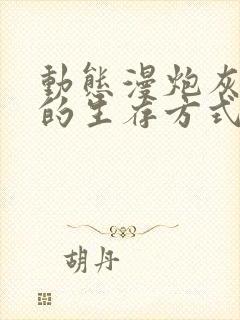 動態漫炮灰
的生存方式
胡丹